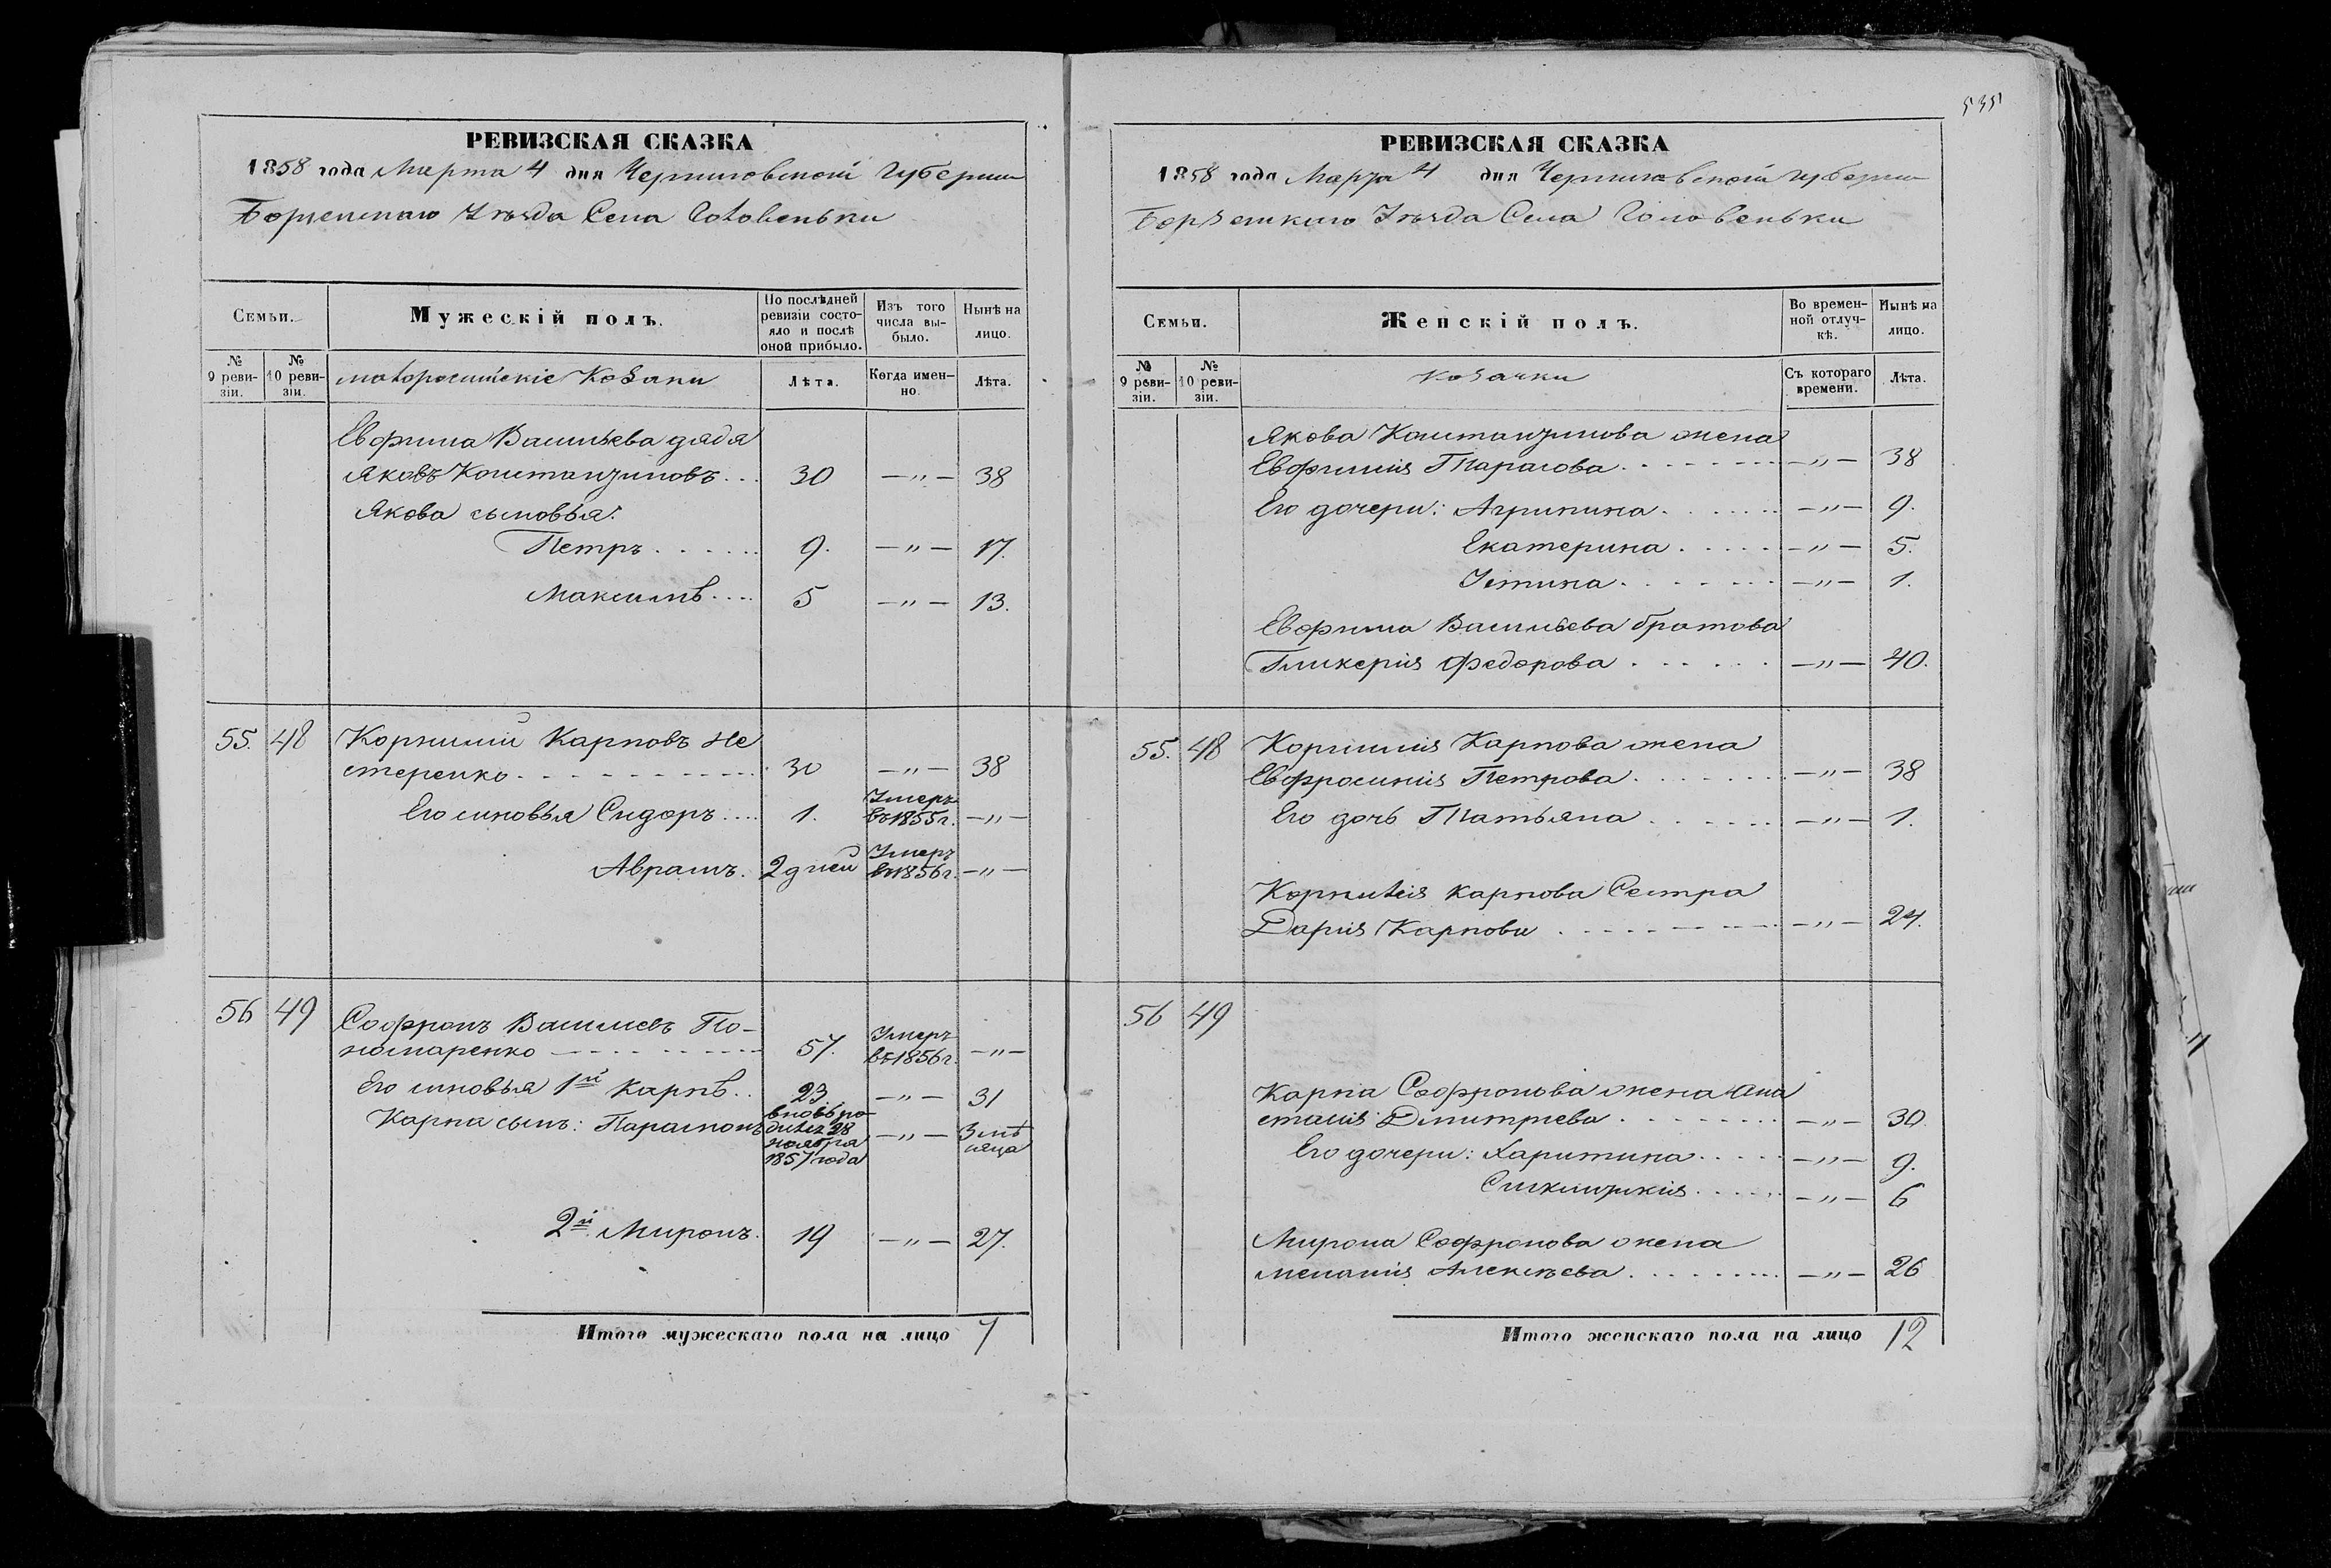 535
РЕВИЗСКАЯ СКАЗКА
1858 года Марта 4 дня Черниговской Губернии
Борзенскаго Уѣзда Села Головеньки
Семьи.
Мужескій полъ.
По послѣдней ревизіи состояло и послѣ оной прибыло.
Изъ того числа выбыло.
Нынѣ на лицо.
№ 9 ревизіи.
№ 10 ревизіи.
малоросийскіе Козаки
Лѣта.
Когда именно.
Лѣта.
Евфима Васильева дядя
Яковъ Констанзиновъ . . . 30 —„— 38
Якова сыновья:
Петръ . . . . . . 9. —„— 17.
Максимъ . . . . 5 —„— 13.
55. 48 Корнилий Карповъ Не
стеренко . . . . . . . 30 —„— 38
Его синовья Сидоръ . . . . 1. Умеръ въ 1855 г. —„—
Аврамъ. 2 дней Умеръ въ 1856 г. —„—
56 49 Софронъ Василиевъ По-
номаренко . . . . . . 57. Умеръ въ 1856 г. —„—
Его синовья 1й Карпъ . . 23. —„— 31
Карпа сынъ: Парамонъ вновь родился 28 ноября 1857 года —„— 3 мѣсяца
2й Миронъ. 19 —„— 27.
Итого мужескаго пола на лицо 7
РЕВИЗСКАЯ СКАЗКА
1858 года Марта 4 дня Черниговской Губернии
Борзенскаго Уѣзда Села Головеньки
Семьи.
Женскій полъ.
Во временной отлучкѣ.
Нынѣ на лицо.
№ 9 ревизіи.
№ 10 ревизіи.
козачки
Съ котораго времени.
Лѣта.
Якова Констанзинова жена
Евфимия Тарасова . . . . . . —„— 38
Его дочери: Агрипина . . . . . . —„— 9.
Екатерина . . . . . —„— 5.
Устина . . . . . . —„— 1.
Евфима Васильева братова
Гликерия Федорова . . . . . . —„— 40.
55. 48 Корнилия Карпова жена
Евфросиния Петрова . . . . . . —„— 38
Его дочь Татьяна . . . . . . —„— 1.
Корнилия Карпова Сестра
Дария Карпова . . . . . . —„— 24.
56 49
Карпа Софронова жена Ана
стасия Дмитриева . . . . . . —„— 30.
Его дочери: Харитина . . . . . —„— 9.
. . . . . —„— 6
Мирона Софронова жена
Мелания Алексѣева . . . . . . —„— 26
Итого женскаго пола на лицо 12